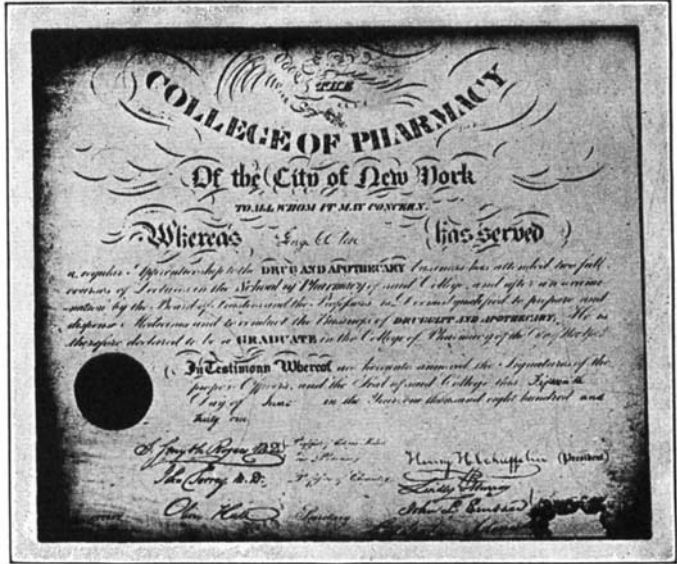 THE
COLLEGE OF PHARMACY
Of the City of New York
TO ALL WHOM IT MAY CONCERN.
Whereas has served
a regular Apprenticeship to the DRUG AND APOTHECARY business has attended two full
courses of Lectures in the School of Pharmacy of said College, and after an exami-
nation by the Board of Trustees and the Professors is deemed qualified to prepare and
dispense Medicines and to conduct the Business of DRUGGIST AND APOTHECARY, He is
therefore declared to be a GRADUATE in the College of Pharmacy of the City of
In Testimony Whereof are hereunto annexed the Signatures of the
proper Officers, and the Seal of said College this
Day of June in the Year one thousand eight hundred and
thirty one
J. Smyth Rogers M.D. Professor of
Henry H. Schieffelin (President)
John Torrey M.D. Professor of Chemistry
Lindley Murray
Oliver Hull Secretary
John L. Embree